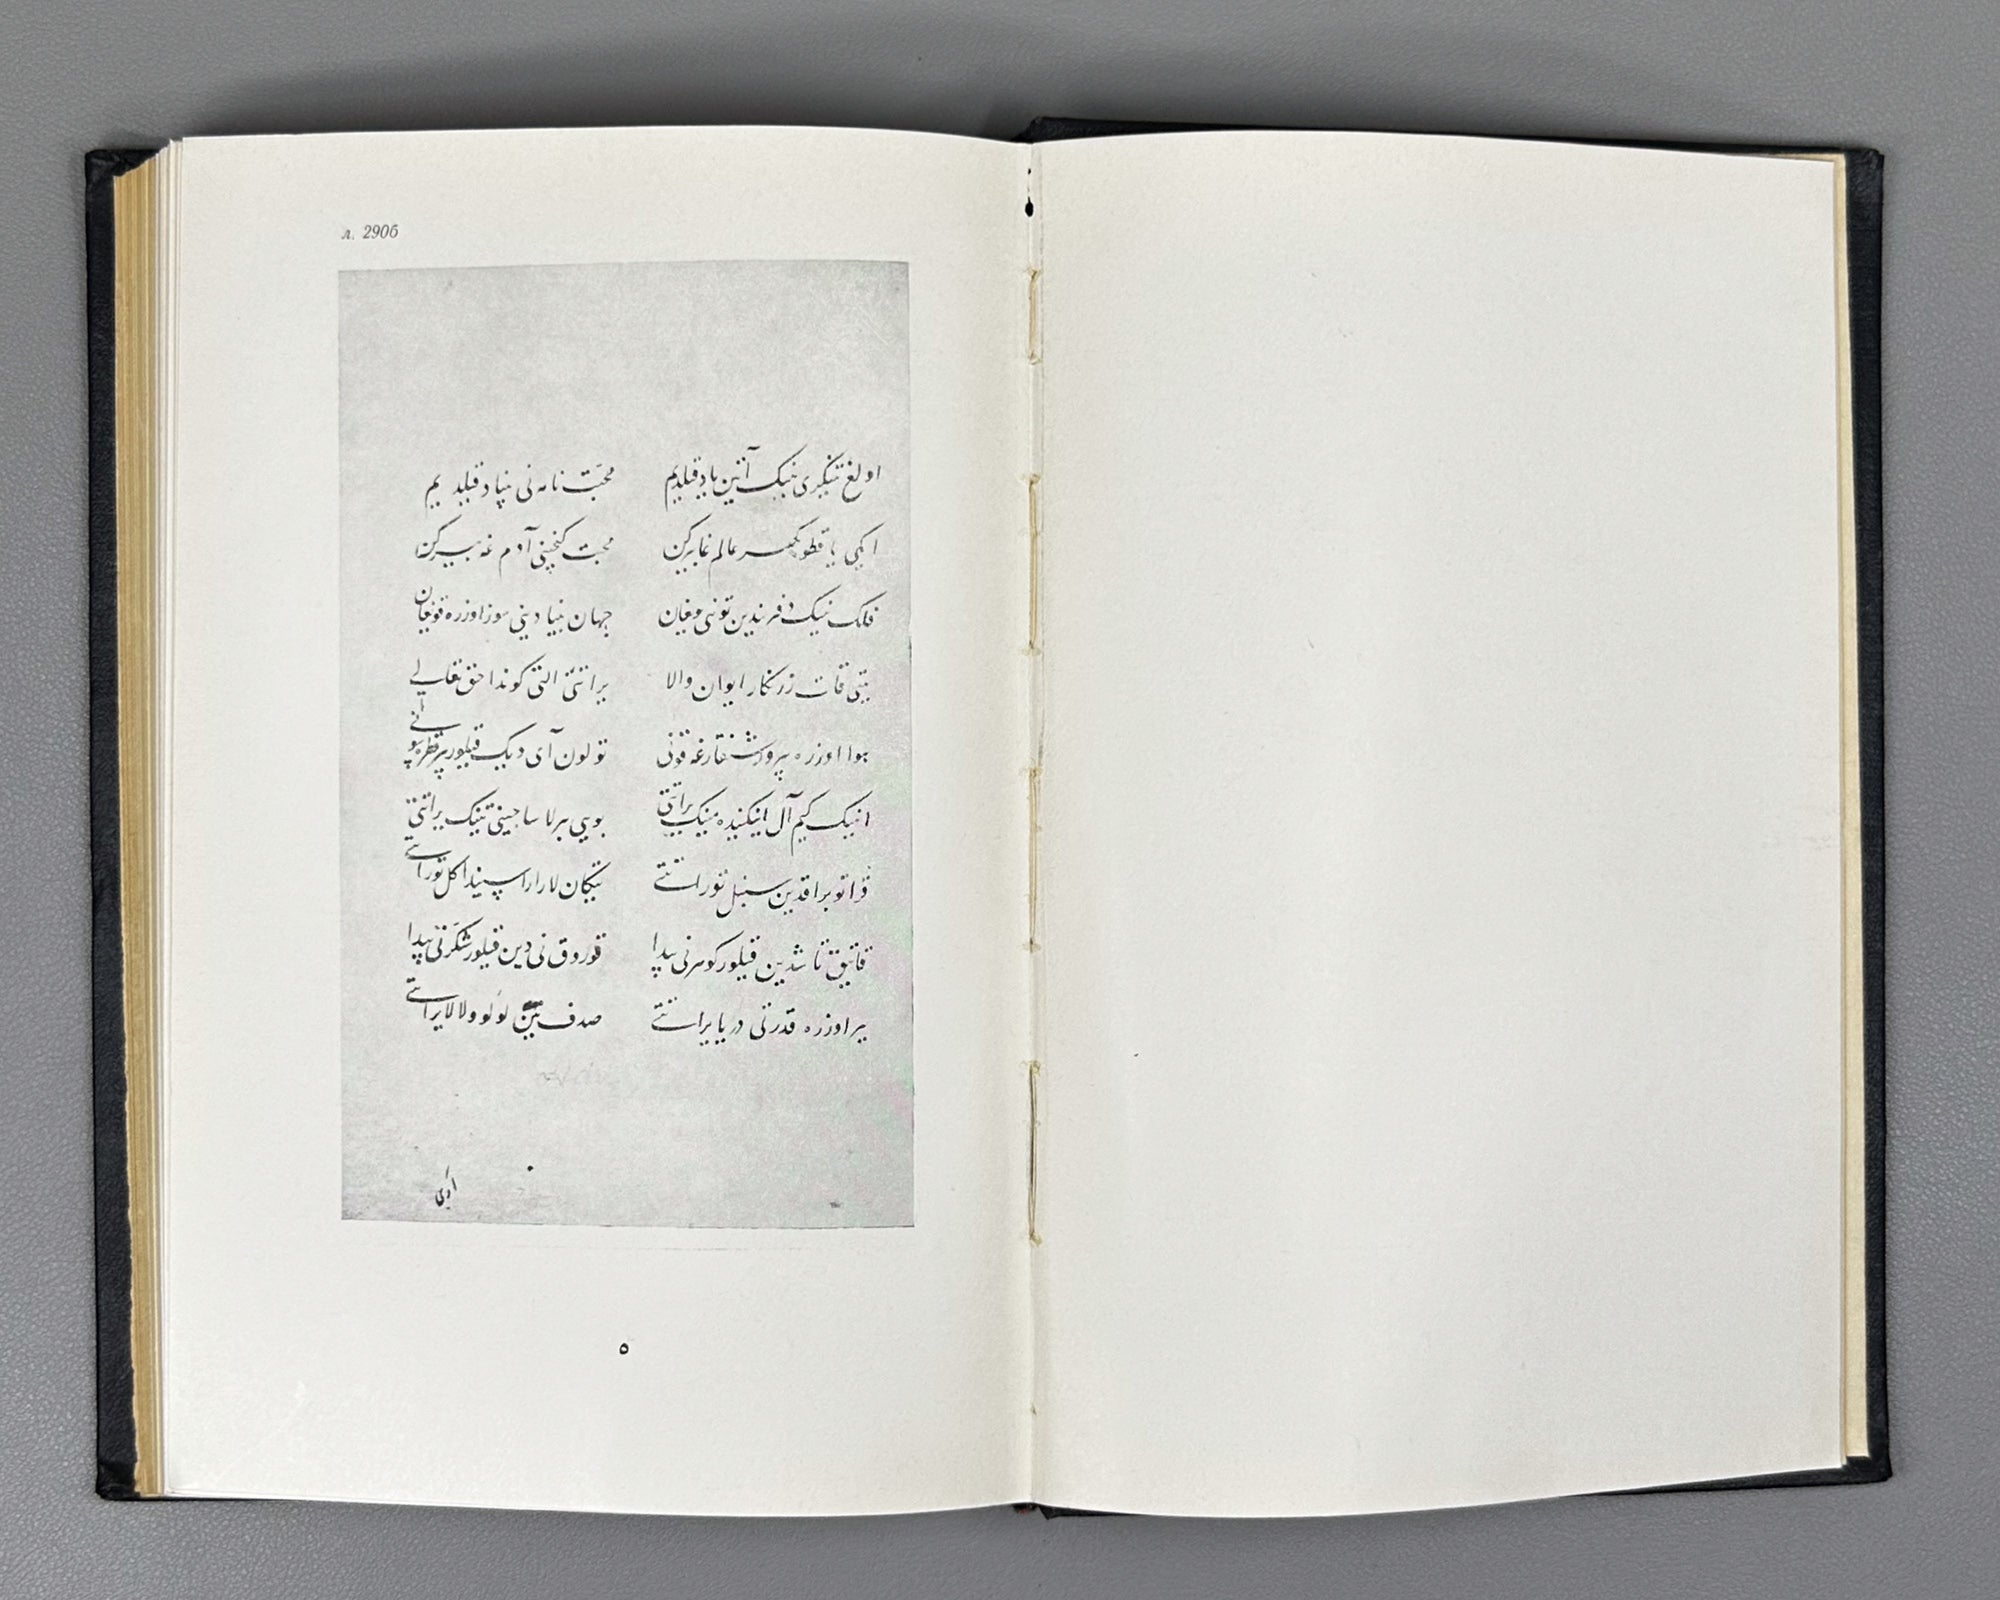 л. 290б
اولغ تنکری ننیک آتین یاد قیلدیم محبّت نامه نی بنیاد قیلدیم
ایکی یاقطو کهر عالم غا بیرکن محبت کنجنی آدم غه بیرکن
فلک نینک دفترندین تونی جهان بنیادینی سوز اوزره قویغان
یتی قات زرنکار ایوان والا یراتتی التی کوندا حق تعالی
هوا اوزره پرواز غه تولون آی دیک قیلور بیر قطره سونی
انینک کیم آل اینکینده مینک یراتتی بویی بیرلا ساجینی تینک یراتتی
قرا توبراقدین سنبل توراتتی تیکان لار اراسیندا کل توراتتی
قاتیق تاشدین قیلور کوهرنی پیدا قوروق نی دین قیلور شکرنی پیدا
یر اوزره قدرتی دریا یراتتی صدف تین لولو ولالا یراتتی
۵